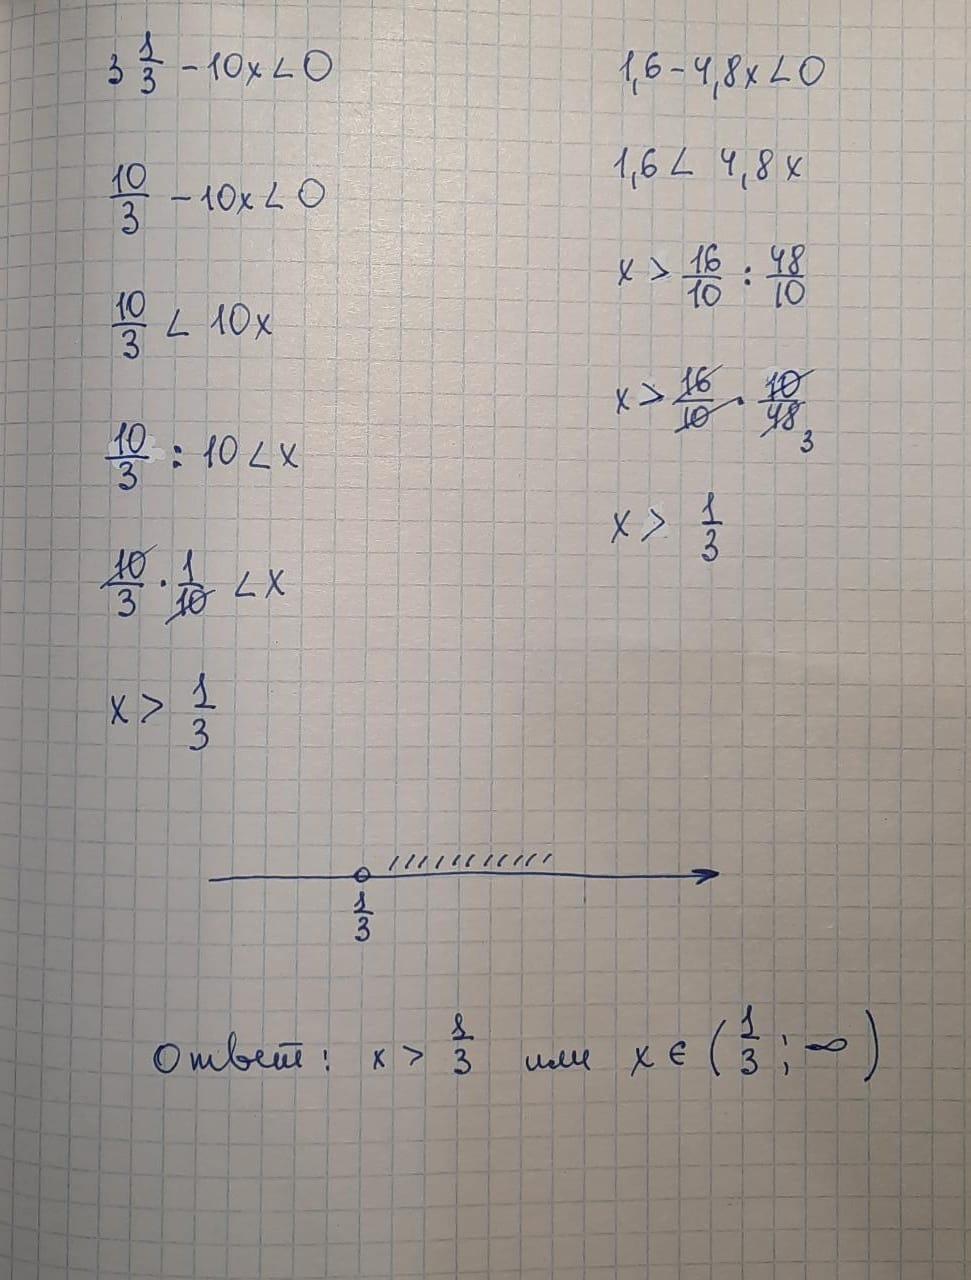 3 1/3 - 10x < 0
10/3 - 10x < 0
10/3 < 10x
10/3 : 10 < x
10/3 · 1/10 < x
x > 1/3
1,6 - 4,8x < 0
1,6 < 4,8x
x > 16/10 : 48/10
x > 16/10 · 10/48 3
x > 1/3
1/3
Ответ: x > 1/3 или x ∈ (1/3 ; ∞)